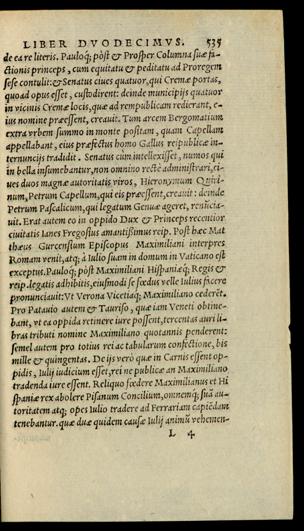 LIBER DVODECIMVS. 535
de ea re literis. Pauloq́; pòst & Prosper Columna suæ fa-
ctionis princeps, cum equitatu & peditatu ad Proregem
sese contulit: & Senatus ciues quatuor, qui Cremæ portas,
quoad opus esset, custodirent: deinde municipijs quatuor
in vicinis Cremæ locis, quæ ad rempublicam redierant, e-
ius nomine præessent, creauit. Tum arcem Bergomatium
extra vrbem summo in monte positam, quam Capellam
appellabant, eius præfectus homo Gallus reipublicæ in-
ternuncijs tradidit. Senatus cum intellexisset, numos qui
in bella insumebantur, non omnino rectè administrari, ci-
ues duos magnæ autoritatis viros, Hieronymum Quiri-
num, Petrum Capellum, qui eis præessent, creauit: deinde
Petrum Pascalicum, qui legatum Genuæ ageret, renūcia-
uit. Erat autem eo in oppido Dux & Princeps recentior
ciuitatis Ianes Fregosius amantißimus reip. Post hæc Mat
thæus Gurcensium Episcopus Maximiliani interpres
Romam venit, atq; à Iulio suam in domum in Vaticano est
exceptus. Pauloq́; pòst Maximiliani Hispaniæq́; Regis &
reip. legatis adhibitis, eiusmodi se fœdus velle Iulius facere
pronunciauit: Vt Verona Vicetiaq́; Maximiliano cederēt.
Pro Patauio autem & Tauriso, quæ iam Veneti obtine-
bant, vt ea oppida retinere iure possent, tercentas auri li-
bras tributi nomine Maximiliano quotannis penderent:
semel autem pro totius rei ac tabularum confectione, bis
mille & quingentas. De ijs verò quæ in Carnis essent op-
pidis, Iulij iudicium esset, rei ne publicæ an Maximiliano
tradenda iure essent. Reliquo fœdere Maximilianus et Hi
spaniæ rex abolere Pisanum Concilium, omnemq́; suā au-
toritatem atq; opes Iulio tradere ad Ferrariam capiēdam
tenebantur. quæ duæ quidem causæ Iulij animū vehemen-
L 4